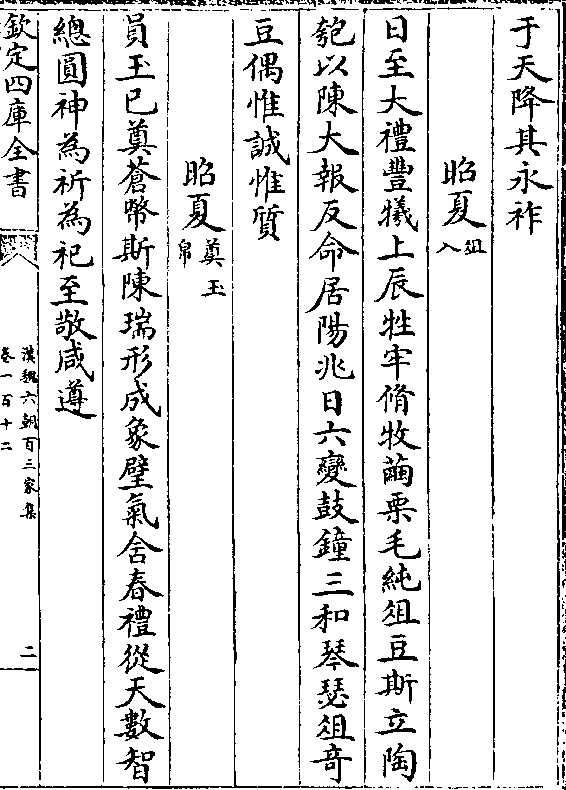 于天降其永祚
昭夏俎入
日至大禮豐犧上辰牲牢脩牧繭栗毛純俎豆斯立陶
匏以陳大報反命居陽兆日六變鼓鐘三和琴瑟俎竒
豆偶惟誠惟質
昭夏奠玉帛
員玉已奠蒼幣斯陳瑞形成象璧氣含春禮從天數智
總圓神為祈為祀至敬咸遵
欽定四庫全書
漢魏六朝百三家集
卷一百十二
二